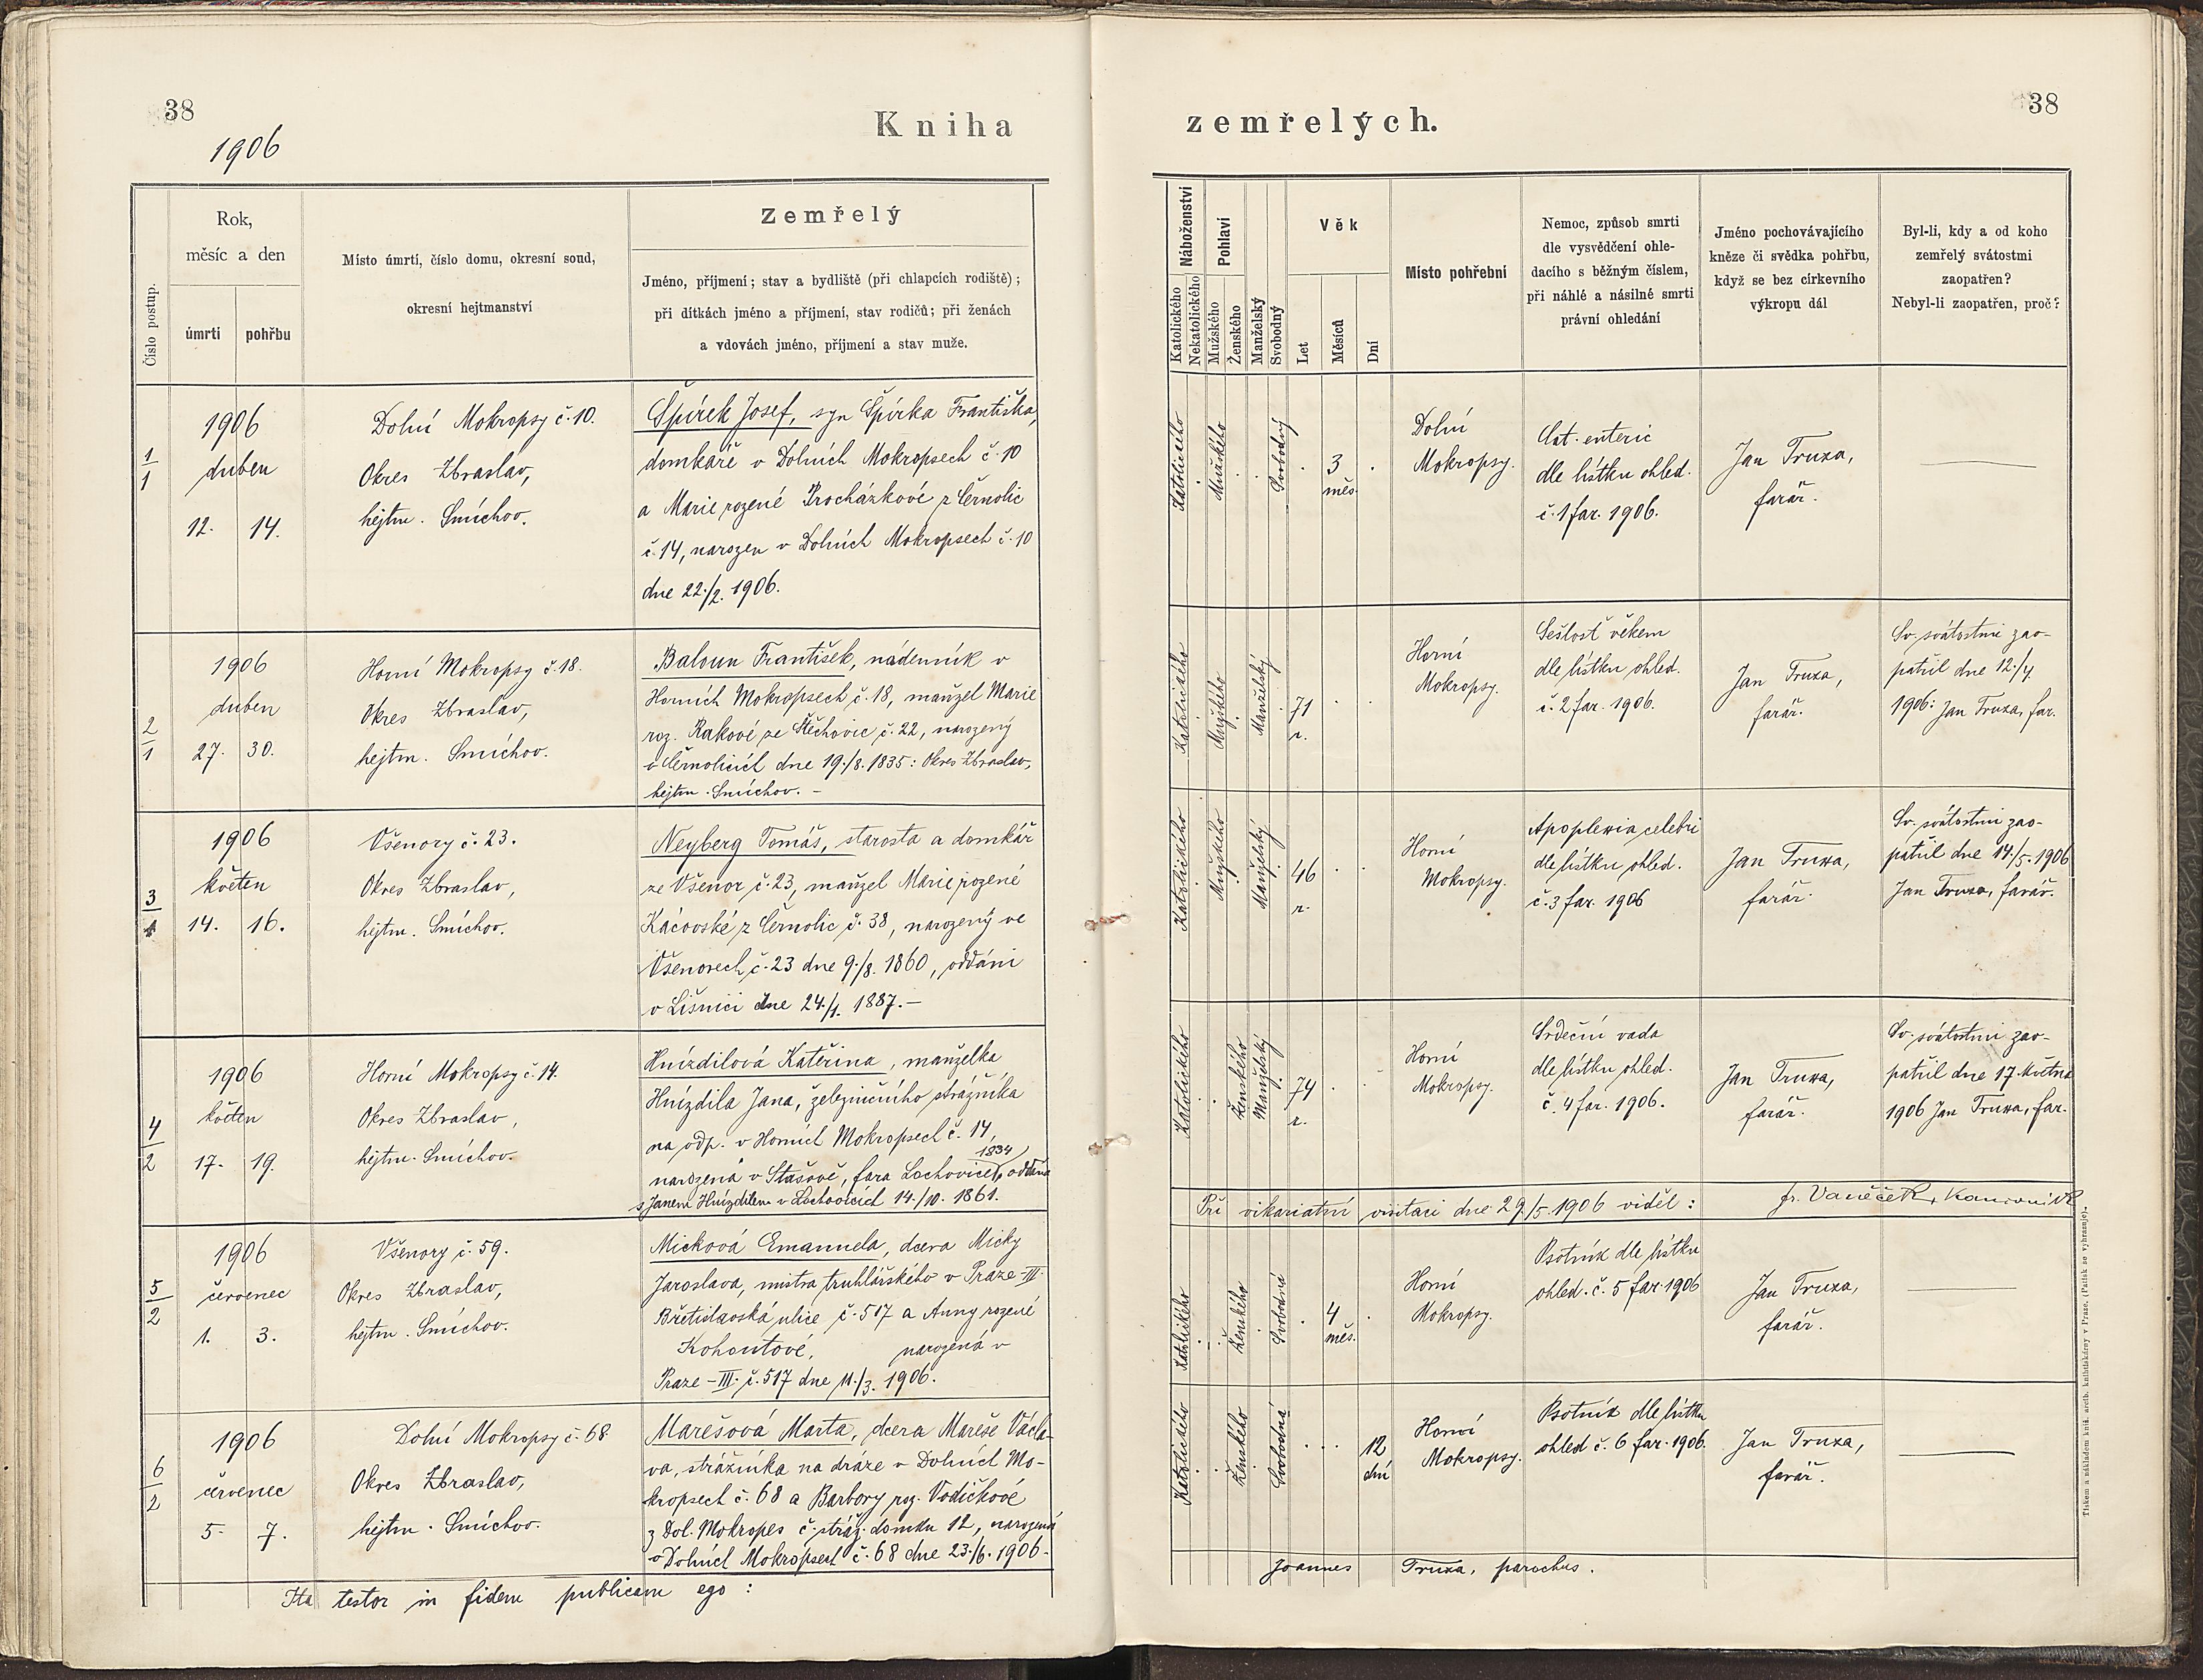 38
1906
Kniha
Číslo postup.
Rok,
měsíc a den
úmrtí
pohřbu
Místo úmrtí, číslo domu, okresní soud,
okresní hejtmanství
Zemřelý
Jméno, příjmení; stav a bydliště (při chlapcích rodiště);
při dítkách jméno a příjmení, stav rodičů; při ženách
a vdovách jméno, příjmení a stav muže.
1/1
1906
duben
12. 14.
Dolní Mokropsy č. 10.
Okres Zbraslav,
hejtm. Smíchov.
Špírek Josef, syn Špírka Františka,
domkáře v Dolních Mokropsech č. 10
a Marie rozené Procházkové z Černolic
č. 14, narozen v Dolních Mokropsech č. 10
dne 22./2. 1906.
2/1
1906
duben
27. 30.
Horní Mokropsy č. 18.
Okres Zbraslav,
hejtm. Smíchov.
Baloun František, nádenník v
Horních Mokropsech č. 18, manžel Marie
roz. Rakové ze Štěchovic č. 22, narozený
v Černolicích dne 19./8. 1835: Okres Zbraslav,
hejtm. Smíchov. –
3/1
1906
květen
14. 16.
Všenory č. 23.
Okres Zbraslav,
hejtm. Smíchov.
Neyberg Tomáš, starosta a domkář
ze Všenor č. 23, manžel Marie rozené
Kácovské z Černolic č. 38, narozený ve
Všenorech č. 23 dne 9./8. 1860, oddáni
v Líšnici dne 24./1. 1887. –
4/2
1906
květen
17. 19.
Horní Mokropsy č. 14.
Okres Zbraslav,
hejtm. Smíchov.
Hnízdilová Kateřina, manželka
Hnízdila Jana, železničního strážníka
na odp. v Horních Mokropsech č. 14,
1834
narozená v Stašově, fara Lochovice, oddána
s Janem Hnízdilem v Lochovicích 14./10. 1861.
5/2
1906
červenec
1. 3.
Všenory č. 59.
Okres Zbraslav,
hejtm. Smíchov.
Micková Emanuela, dcera Micky
Jaroslava, mistra truhlářského v Praze-III.
Břetislavská ulice č. 517 a Anny rozené
Kohoutové, narozená v
Praze-III. č. 517 dne 11./3. 1906.
6/2
1906
červenec
5. 7.
Dolní Mokropsy č. 68
Okres Zbraslav,
hejtm. Smíchov.
Marešová Marta, dcera Mareše Václa-
va, strážníka na dráze v Dolních Mo-
kropsech č. 68 a Barbory roz. Vodičkové
z Dol. Mokropes č. stráž. domku 12, narozená
v Dolních Mokropsech č. 68 dne 23./6. 1906.
Ita testor in fidem publicam ego:
38
zemřelých.
Náboženství
Katolického
Nekatolického
Pohlaví
Mužského
Ženského
Manželský
Svobodný
Věk
Let
Měsíců
Dní
Místo pohřební
Nemoc, způsob smrti
dle vysvědčení ohle-
dacího s běžným číslem,
při náhlé a násilné smrti
právní ohledání
Jméno pochovávajícího
kněze či svědka pohřbu,
když se bez církevního
výkropu dál
Byl-li, kdy a od koho
zemřelý svátostmi
zaopatřen?
Nebyl-li zaopatřen, proč?
Katolického
Mužského
Svobodný
3
měs.
Dolní
Mokropsy.
Cat. enteric
dle lístku ohled.
č. 1 far. 1906.
Jan Truxa,
farář.
Katolického
Mužského
Manželský
71
r.
Horní
Mokropsy.
Sešlosť věkem
dle lístku ohled.
č. 2 far. 1906.
Jan Truxa,
farář.
Sv. svátostmi zao-
patřil dne 12./4.
1906: Jan Truxa, far.
Katolického
Mužského
Manželský
46
r.
Horní
Mokropsy.
Apoplexia celebri
dle lístku ohled.
č. 3 far. 1906
Jan Truxa,
farář.
Sv. svátostmi zao-
patřil dne 14./5. 1906
Jan Truxa, farář.
Katolického
Ženského
Manželský
74
r.
Horní
Mokropsy.
Srdeční vada
dle lístku ohled.
č. 4 far. 1906.
Jan Truxa,
farář.
Sv. svátostmi zao-
patřil dne 17. května
1906 Jan Truxa, far.
Při vikariatní visitaci dne 29./5. 1906 viděl: Fr. Vaněček, kanovník
Katolického
Ženského
Svobodná
4
měs.
Horní
Mokropsy.
Psotník dle lístku
ohled. č. 5 far. 1906
Jan Truxa,
farář.
Katolického
Ženského
Svobodná
12
dní
Horní
Mokropsy.
Psotník dle lístku
ohled č. 6 far. 1906.
Jan Truxa,
farář.
Joannes Truxa, parochus.
Tiskem a nákladem kníž. arcib. knihtiskárny v Praze. (Patisk se vyhrazuje).